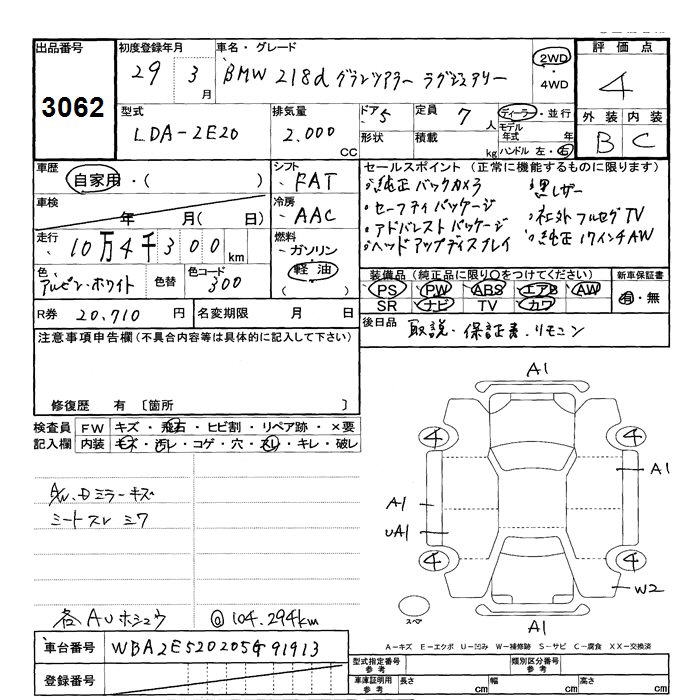 出品番号 初度登録年月 車名・グレード 評価点
3062 29年 3月 BMW 218d グランツアラー ラグジュアリー 2WD・4WD 4
型式 排気量 ドア 5 定員 7人 ディーラー・並行 外装 内装
LDA-2E20 2.000CC 形状 積載 kg モデル年式 年 B C
ハンドル 左・右
車歴 シフト セールスポイント (正常に機能するものに限ります)
自家用・( ) FAT ・純正バックカメラ ・黒レザー
車検 年 月( 日) 冷房 AAC ・セーフティパッケージ ・社外フルセグTV
・アドバンストパッケージ ・純正17インチAW
走行 10万4千300km 燃料 ガソリン 軽油 ( ) ・ヘッドアップディスプレイ
色 アルピン・ホワイト 色替 色コード 300 装備品(純正品に限り○をつけてください) 新車保証書
PS PW ABS エアB AW 有・無
SR ナビ TV カワ
R券 20,710円 名変期限 月 日 後日品 取説・保証書・リモコン
注意事項申告欄(不具合内容等は具体的に記入して下さい)
修復歴 有 〔箇所 〕
検査員 FW キズ・飛石・ヒビ割・リペア跡・×要
記入欄 内装 キズ・汚レ・コゲ・穴・スレ・キレ・破レ
ミラーキズ
シートスレ シワ
各AUホシュウ @104.294km
A1
4 4
A1
A1
UA1
4 4
W2
スペ
A1
A-キズ E-エクボ U-凹み W-補修跡 S-サビ C-腐食 XX-交換済
車台番号 WBA2E520205G91913 型式指定番号 参考 類別区分番号 参考
登録番号 車庫証明用 参考 長さ cm 幅 cm 高さ cm